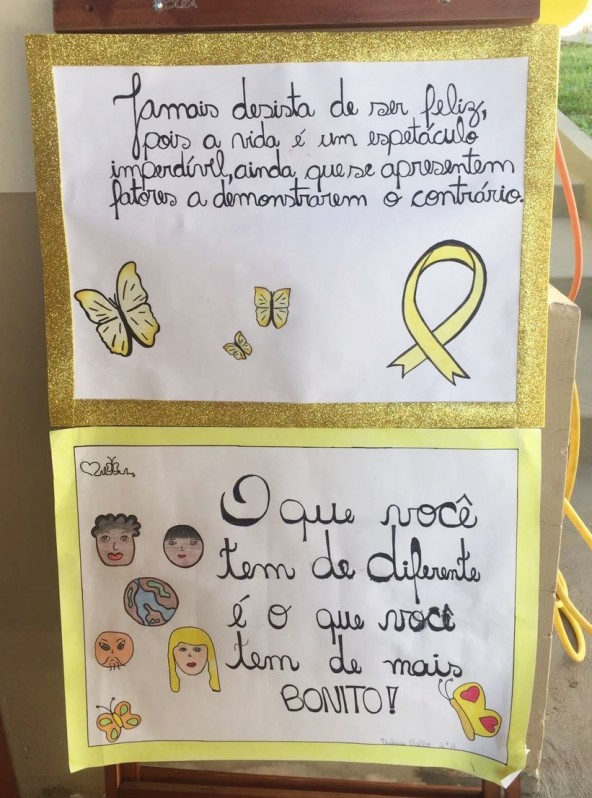 Jamais desista de ser feliz,
pois a vida é um espetáculo
imperdível, ainda que se apresentem
fatores a demonstrarem o contrário.
O que você
tem de diferente
é o que você
tem de mais
BONITO!